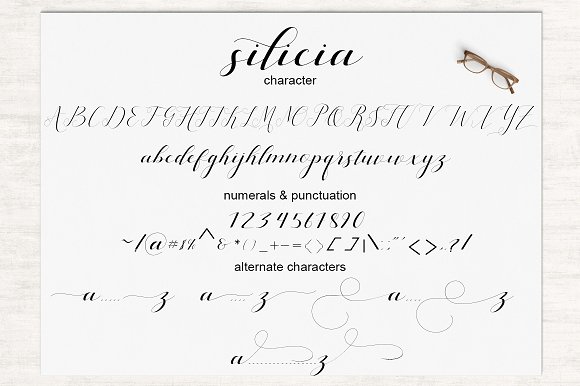 silicia
character
A B C D E F G H I J K L M N O P Q R S T U V W X Y Z
a b c d e f g h i j k l m n o p q r s t u v w x y z
numerals & punctuation
1 2 3 4 5 6 7 8 9 0
~ / @ # $ % ^ & * ( ) _ + - = < > [ ] | \ : ; " ' < > , . ? /
alternate characters
a.....z a....z a....z
a................z